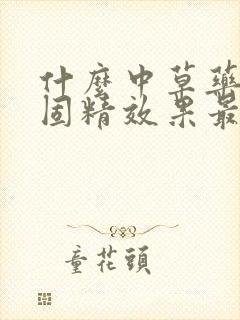 什麼中草藥
固精效果最
童花頭